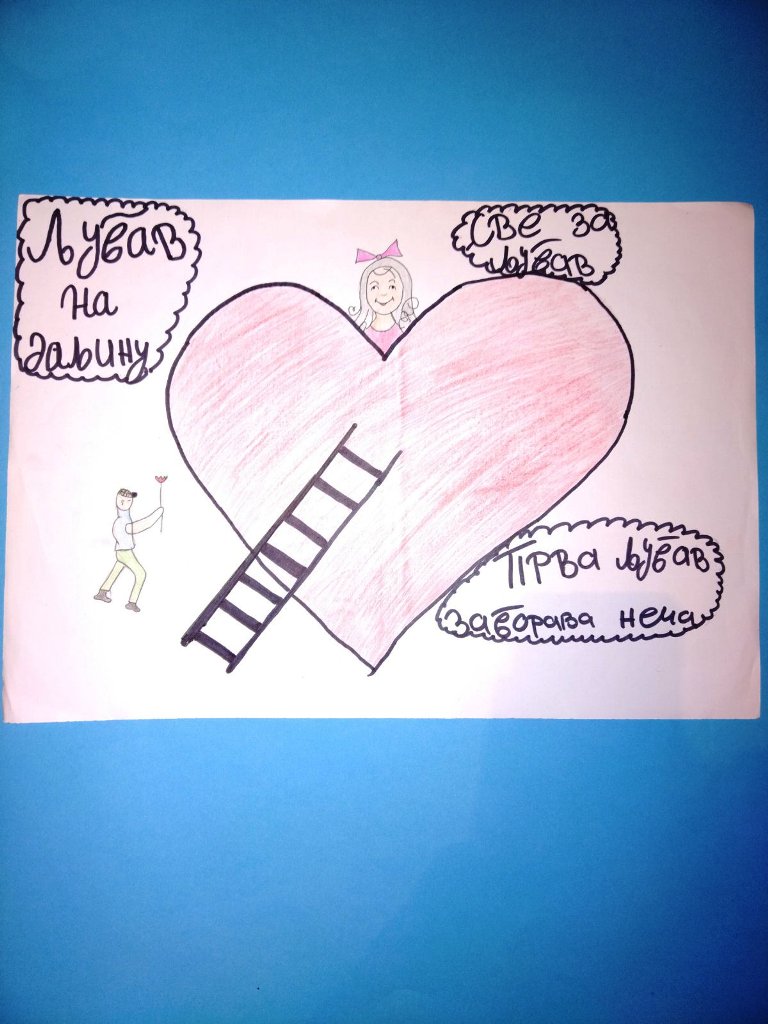 Љубав
на
даљину
Све за
љубав
Прва љубав
заборава нема